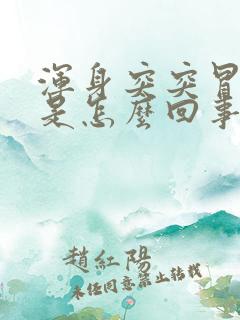 渾身突突冒
是怎麼回事
趙紅陽
未經同意禁止轉載